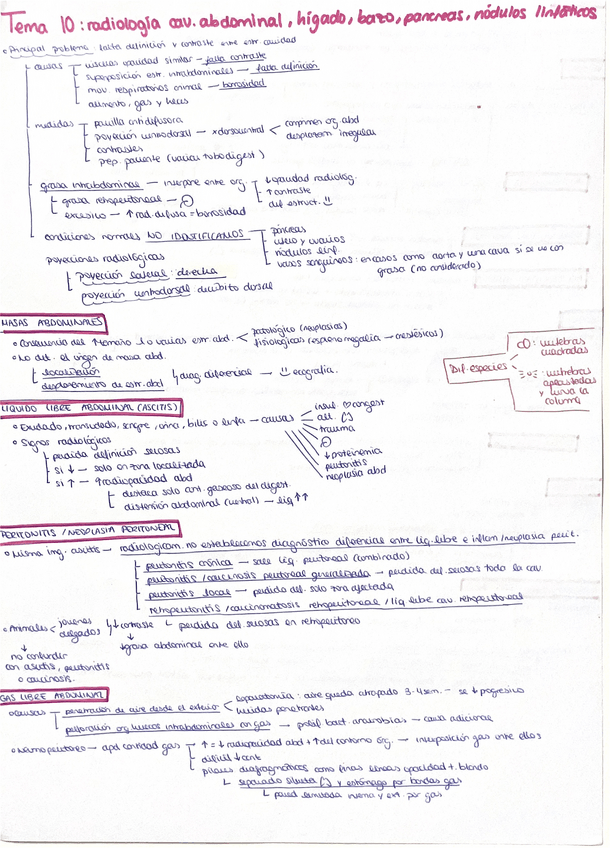 Tema 10: radiología cav. abdominal, hígado, bazo, pancreas, nódulos linfáticos
Principal problema: falta definición y contraste entre estr. cavidad
causas — vísceras opacidad similar — falta contraste
superposición estr. intrabdominales — falta definición
mov. respiratorios animal — borrosidad
alimento, gas y heces
medidas — parrilla antidifusora
proyección ventrodorsal — x dorsoventral < comprimen org. abd
desplazam. irregular
contrastes
prep. paciente (vaciar tubo digest)
grasa intrabdominal — interpone entre org. — ↓ opacidad radiológ.
↑ contraste
dif. estruct.
grasa retroperitoneal —
excesivo — ↑ rad. difusa = borrosidad
condiciones normales NO IDENTIFICAMOS — páncreas
útero y ovarios
nódulos linf.
vasos sanguíneos: en casos como aorta y vena cava si se ve con
grasa (no considerado)
proyecciones radiológicas
proyección lateral: derecha
proyección ventrodorsal: decúbito dorsal
MASAS ABDOMINALES
Consecuencia del ↑ tamaño 1 o varias estr. abd. < patológico (neoplasias)
fisiológicas (esplenomegalia — anestésicos)
No det. el origen de masa abd.
localización
desplazamiento de estr. abd
diag. diferencial — ecografía.
Dif. especies
: vertebras cuadradas
: vertebras aplastadas y curva la columna
LIQUIDO LIBRE ABDOMINAL (ASCITIS)
Exudado, trasudado, sangre, orina, bilis o linfa — causas
insuf. congest
alt.
trauma
↓ proteinemia
peritonitis
neoplasia abd
Signos radiológicos
perdida definición serosas
si ↓ — solo en zona localizada
si ↑ — ↑ radiopacidad abd
destaca solo cont. gaseoso del digest.
distensión abdominal (ventral) — liq ↑↑
PERITONITIS / NEOPLASIA PERITONEAL
Misma img. ascitis — radiologicam. no establecemos diagnóstico diferencial entre liq. libe e inflam/neoplasia perit.
peritonitis crónica — sale liq. peritoneal (combinado)
peritonitis / carcinosis peritoneal generalizada — perdida def. serosas todo la cav
peritonitis local — perdida def. solo zona afectada
retroperitonitis / carcinomatosis retroperitoneal / liq libe cav. retroperitoneal
perdida def. serosas en retroperitoneo
Animales < jovenes
delgados
↓ contraste
↓ grasa abdominal entre ello
no confundir
con ascitis, peritonitis
o carcinosis.
GAS LIBRE ABDOMINAL
causas — penetración de aire desde el exterior < laparotomia: aire queda atrapado 3-4 sem. — se ↓ progresivo
heridas penetrantes
perforación org. huecos intrabdominales con gas — prolif. bact. anaerobias — causa adicional
Neumoperitoneo — apd cantidad gas — ↑ = ↓ radiopacidad abd + ↑ def contorno órg. — interposición gas entre ellos
difícil ↓ cant
pilares diafragmáticos como finas líneas opacidad t. blando
separado silueta y estómago por bordas gas
pared delimitada interna y ext. por gas